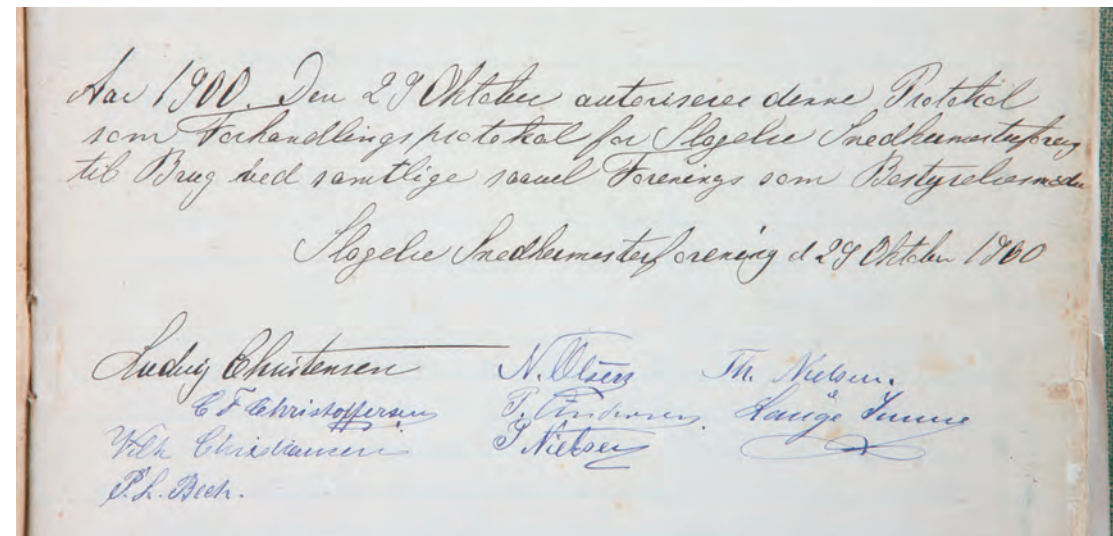 Aar 1900. Den 29 Oktober autoriseres denne Protokol
som Forhandlingsprotokol for Slagelse Snedkermesterforeng
til Brug ved samtlige saavel Forenings som Bestyrelsesmøder
Slagelse Snedkermesterforening d 29 Oktober 1900
Ludvig Christensen N. Olsen Th. Nielsen.
C F Christoffersen P. Andersen. Lauge
Vilh Christiansen P Nielsen
P. L. Bech.